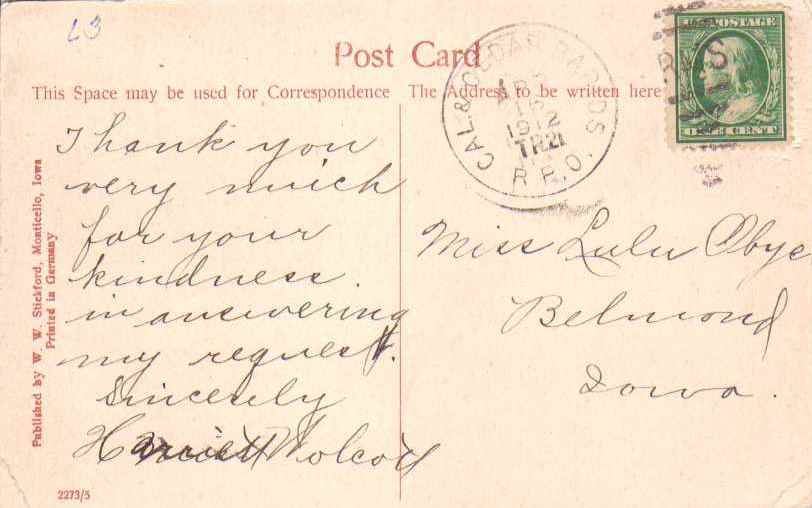 L3
Post Card
This Space may be used for Correspondence
The Address to be written here
U.S. POSTAGE
ONE CENT
R.P.S
CAL. & CEDAR RAPIDS
APR
1912
TR21
R.P.O.
Thank you
very much
for your
kindness.
in answering
my request.
Sincerely
Harriett Wolcott
Miss Lulu Obye
Belmond
Iowa.
Published by W. W. Stickford, Monticello, Iowa
Printed in Germany
2273/5